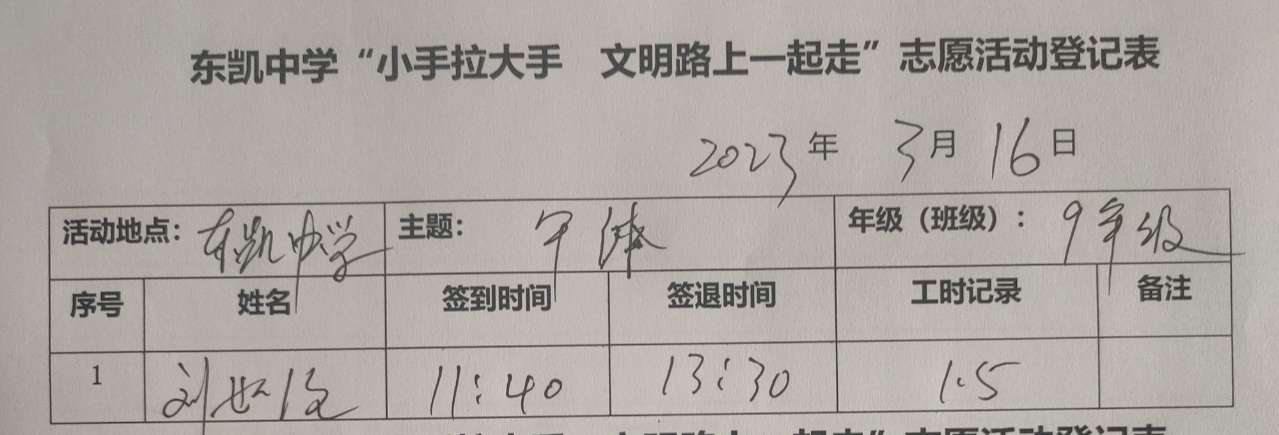 东凯中学“小手拉大手 文明路上一起走”志愿活动登记表
2023年 3月 16日
活动地点：东凯中学 主题： 年级（班级）：9年级
序号 姓名 签到时间 签退时间 工时记录 备注
1 刘 11:40 13:30 1.5